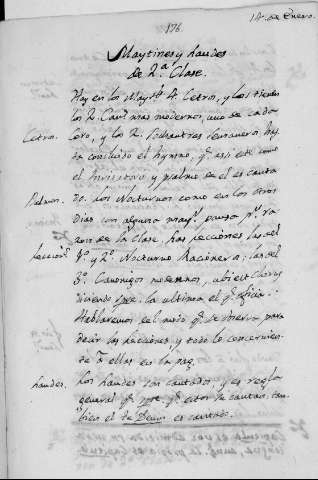 14. de Enero.
176
Maytines y Laudes
de 2.ª Clase.
Hay en los Mayt.s 4. Cetros, y los tienen
los 2. Can.s mas modernos, uno de cada
Cetros. Coro, y los 2. hasta
concluido el hymno, q.e asi este como
el Invitatorio y psalmo se canta
Psalmos. do. los Nocturnos como en los otros
Dias con alguna may.r pausa p.r ra-
zon de la Clase, las lecciones las del
Lecciones. 1.º y 2.º Nocturno Racioneros; las del
3.º Canonigos modernos,
diciendo spre. la ultima el q.e oficia:
Hablaremos del modo q.e se observa para
decir las lecciones, y todo lo concernien-
te a ellas en la pag.
Laudes. Los Laudes son cantados, y es regla
general q.e spre. q.e estos se cantan, tam-
bien el Te Deum es cantado.